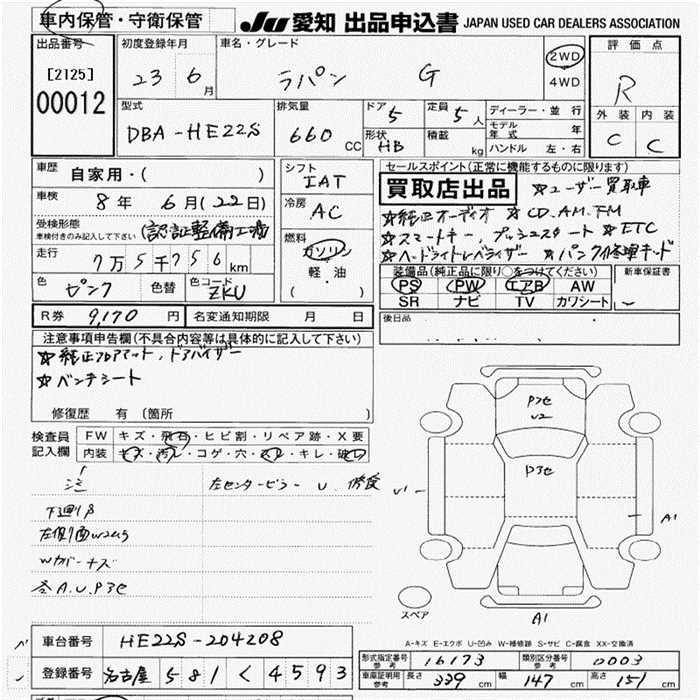 車内保管・守衛保管
JU 愛知 出品申込書 JAPAN USED CAR DEALERS ASSOCIATION
出品番号
[2125]
00012
初度登録年月
23 6月
車名・グレード
ラパン G
2WD
4WD
評価点
R
外装 内装
C C
型式
DBA-HE22S
排気量
660 cc
ドア 5
定員 5人
形状 HB
積載 kg
ディーラー・並行
モデル年式 年
ハンドル 左・右
車歴
自家用・( )
車検
8年 6月(22日)
受検形態
車検付きのみ記入して下さい
(認証整備工場
走行
7万5千756km
色 ピンク
色替
色コード ZKU
シフト
IAT
冷房
AC
燃料
ガソリン
軽・油
( )
セールスポイント(正常に機能するものに限ります)
買取店出品 ☆ユーザー買取車
☆純正オーディオ ☆CD.AM.FM
☆スマートキー、プッシュスタート ☆ETC
☆ヘッドライトレベライザー ☆パンク修理キッド
装備品(純正品に限り○をつけてください)
新車保証書
PS PW エアB AW
SR ナビ TV カワシート
R券 9,170円
名変通知期限 月 日
後日品
注意事項申告欄(不具合内容等は具体的に記入して下さい)
☆純正フロアマット、ドアバイザー
☆ベンチシート
修復歴 有 (箇所 )
検査員
記入欄
FW キズ・飛石・ヒビ割・リペア跡・X要
内装 キズ・汚レ・コゲ・穴・スレ・キレ・破レ
注
左センターピラー U. 修復
下廻りβ
Wカバーキズ
各A.U.P3e
P3e
U2
P3e
U1
A1
スペア
A1
車台番号 HE22S-204208
登録番号 名古屋 581 く 4593
A-キズ E-エクボ U-凹み W-補修跡 S-サビ C-腐食 XX-交換済
形式指定番号 参考 16173
類別区分番号 参考 0003
車庫証明用 参考 長さ 339cm 幅 147cm 高さ 151cm